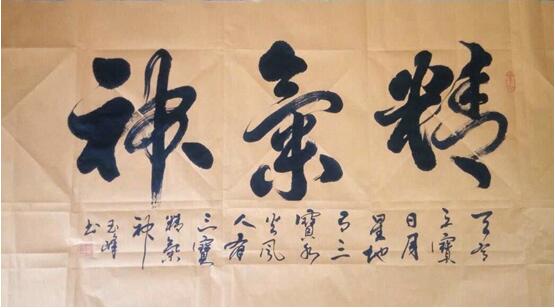 精氣神
天有
三寶
日月
星地
有三
寶水
火風
人有
三寶
精氣
神
玉峰
书